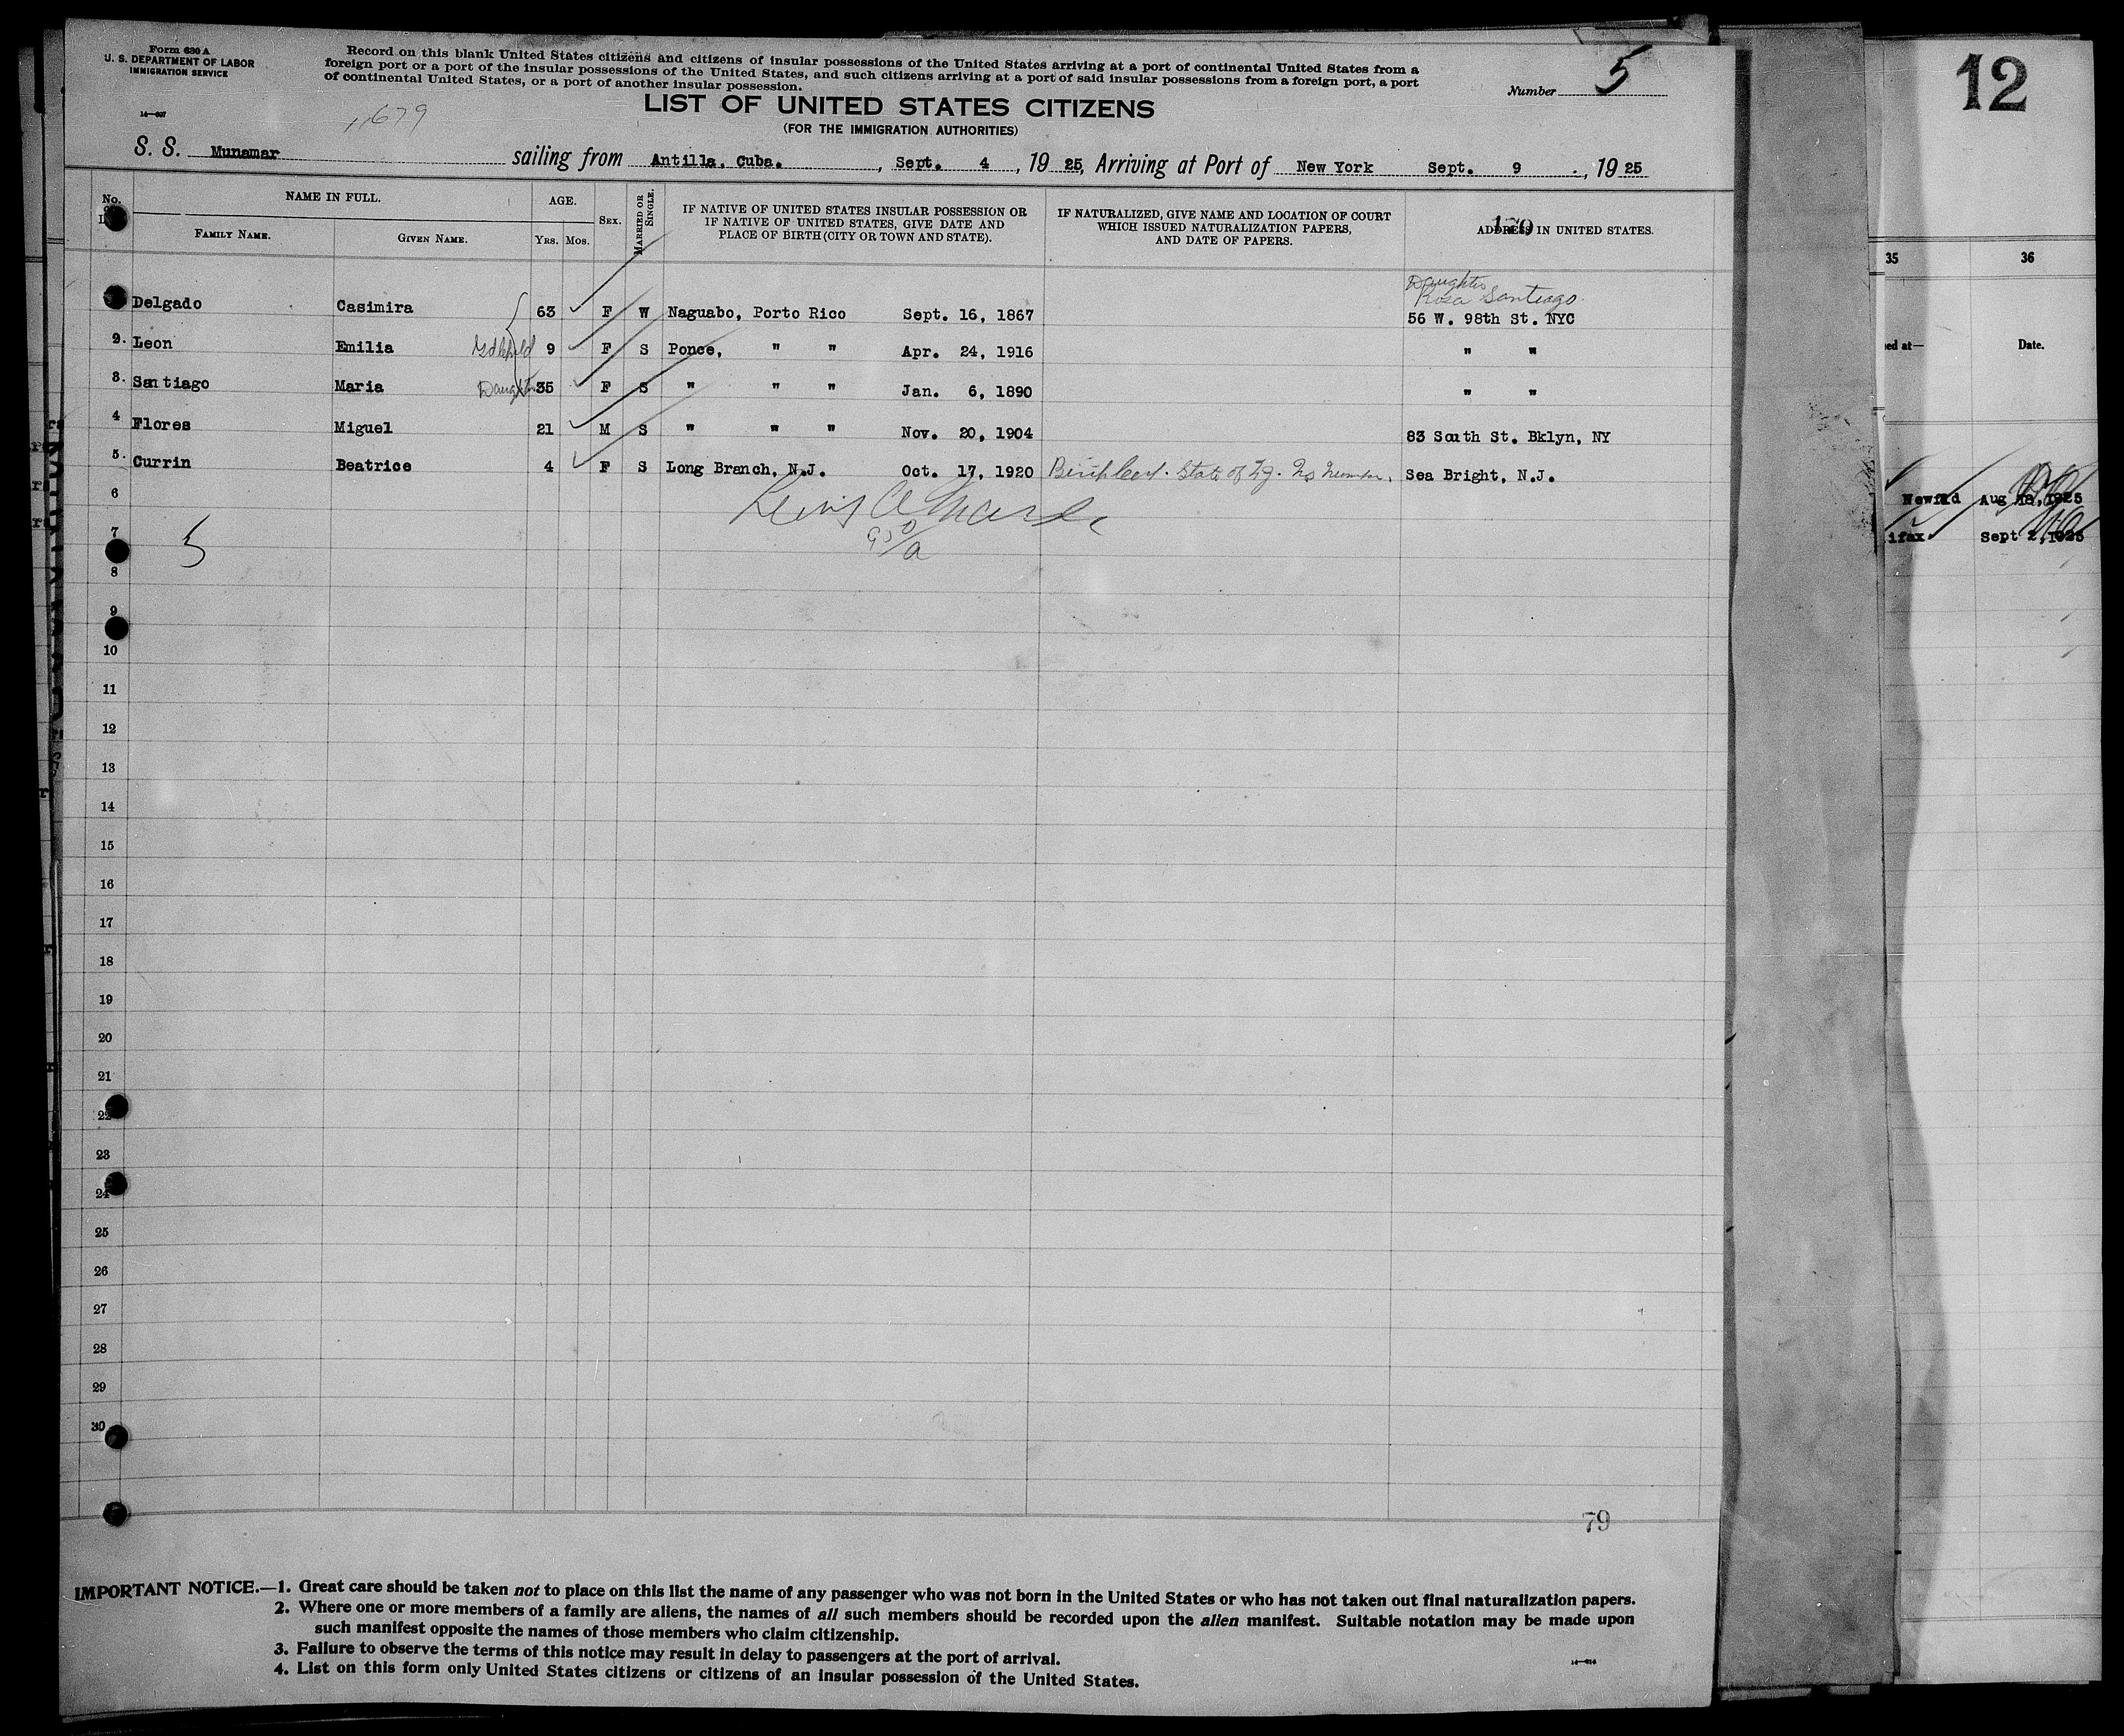 Form 630 A
U. S. DEPARTMENT OF LABOR
IMMIGRATION SERVICE
14—607
Record on this blank United States citizens and citizens of insular possessions of the United States arriving at a port of continental United States from a
foreign port or a port of the insular possessions of the United States, and such citizens arriving at a port of said insular possessions from a foreign port, a port
of continental United States, or a port of another insular possession.
Number 5
12
LIST OF UNITED STATES CITIZENS
(FOR THE IMMIGRATION AUTHORITIES)
11679
S. S. Munamar sailing from Antilla. Cuba. , Sept. 4 , 19 25, Arriving at Port of New York Sept. 9 ., 19 25
No. NAME IN FULL. AGE. SEX. MARRIED OR SINGLE. IF NATIVE OF UNITED STATES INSULAR POSSESSION OR IF NATIVE OF UNITED STATES, GIVE DATE AND PLACE OF BIRTH (CITY OR TOWN AND STATE). IF NATURALIZED, GIVE NAME AND LOCATION OF COURT WHICH ISSUED NATURALIZATION PAPERS, AND DATE OF PAPERS. ADDRESS IN UNITED STATES.
179
FAMILY NAME. GIVEN NAME. YRS. MOS.
35 36
ed at— Date.
Daughter
Rosa Santiago.
Delgado Casimira 63 F W Naguabo, Porto Rico Sept. 16, 1867 56 W. 98th St. NYC
2. Leon Emilia Gdchild 9 F S Ponce, " " Apr. 24, 1916 " "
3. Santiago Maria Daughter 35 F S " " " Jan. 6, 1890 " "
4 Flores Miguel 21 M S " " " Nov. 20, 1904 83 South St. Bklyn, NY
5. Currin Beatrice 4 F S Long Branch, N.J. Oct. 17, 1920 Birth Cert. State of N.J. No Number. Sea Bright, N.J.
Newfld Aug 1925
ifax Sept 2,1925
6
7
5
8
9
10
11
12
13
14
15
16
17
18
19
20
21
22
23
24
25
26
27
28
29
30
79
IMPORTANT NOTICE.—1. Great care should be taken not to place on this list the name of any passenger who was not born in the United States or who has not taken out final naturalization papers.
2. Where one or more members of a family are aliens, the names of all such members should be recorded upon the alien manifest. Suitable notation may be made upon
such manifest opposite the names of those members who claim citizenship.
3. Failure to observe the terms of this notice may result in delay to passengers at the port of arrival.
4. List on this form only United States citizens or citizens of an insular possession of the United States.